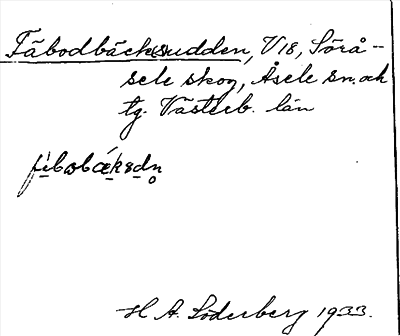 Fäbodbäcksudden, V18, Sörå-
sele skog, Åsele sn. och
tg. Västerb. län
H A. Söderberg 1933.